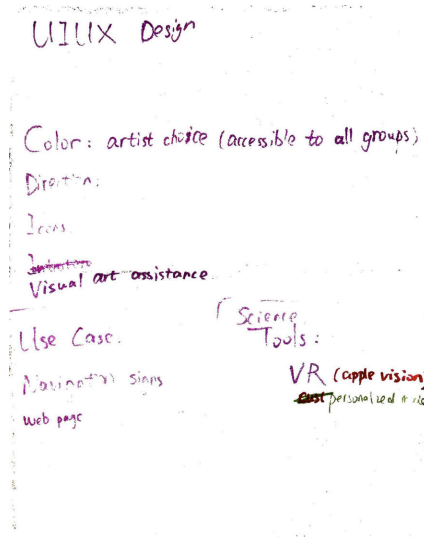 UIUX Design
Color: artist choice (accessible to all groups)
Direction:
Icons
Visual art assistance.
Use Case.
Navination signs
web page
Science
Tools:
VR (apple vision)
personalized